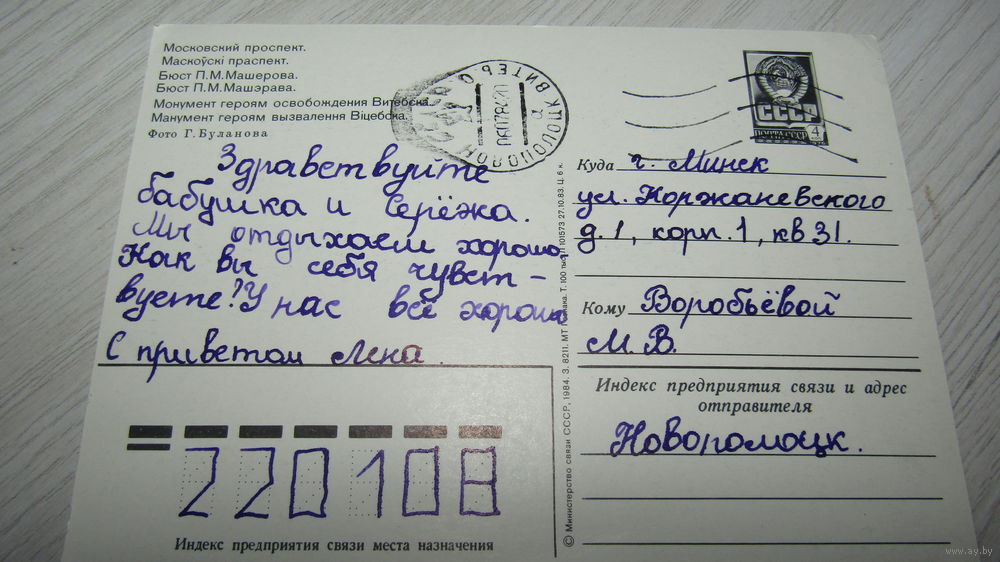 Московский проспект.
Маскоўскі праспект.
Бюст П.М.Машерова.
Бюст П.М.Машэрава.
Монумент героям освобождения Витебска.
Манумент героям вызвалення Віцебска.
Фото Г. Буланова
Здравствуйте
бабушка и Серёжа.
Мы отдыхаем хорошо,
Как вы себя чувст-
вуете? У нас всё хорошо
С приветом Лена.
220108
Индекс предприятия связи места назначения
СССР
ПОЧТА СССР 4
Куда г. Минск
ул. Коржаневского
д. 1, корп. 1, кв 31.
Кому Воробьёвой
М. В.
Индекс предприятия связи и адрес
отправителя
Новоромоцк.
© Министерство связи СССР, 1984. З. 8211. МТ Гознака. Т. 100 101573 27.10.83. Ц. 6 к.
www.ay.by